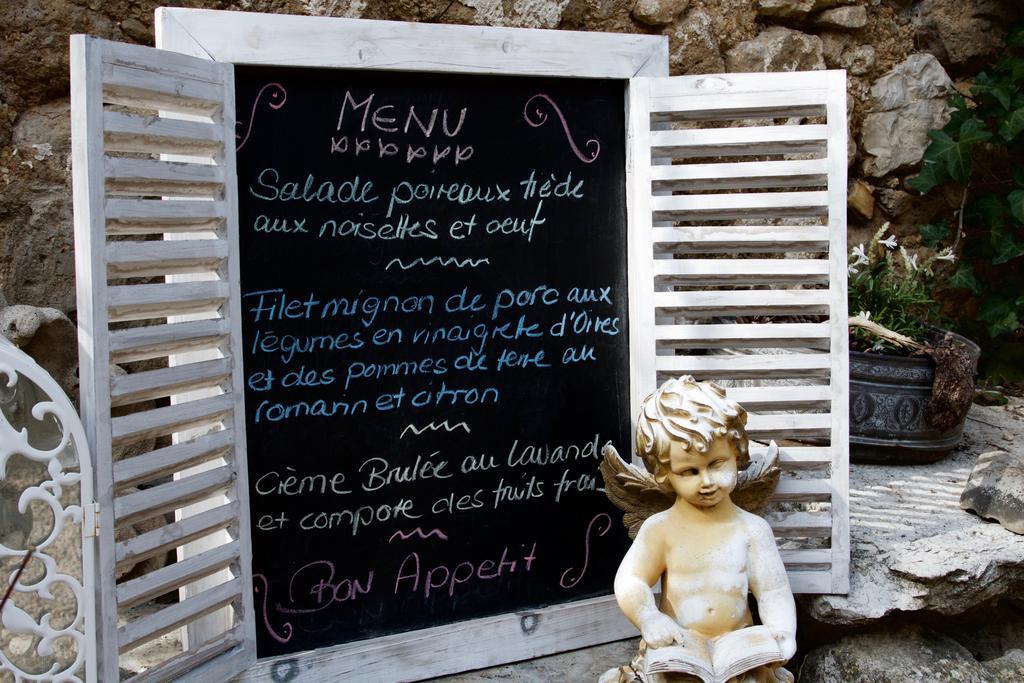 MENU
Salade poireaux tiède
aux noisettes et oeuf
Filet mignon de porc aux
légumes en vinaigrette d'Olives
et des pommes de terre au
romarin et citron
Crème Brulée au lavande
et compote des fruits frais
Bon Appetit